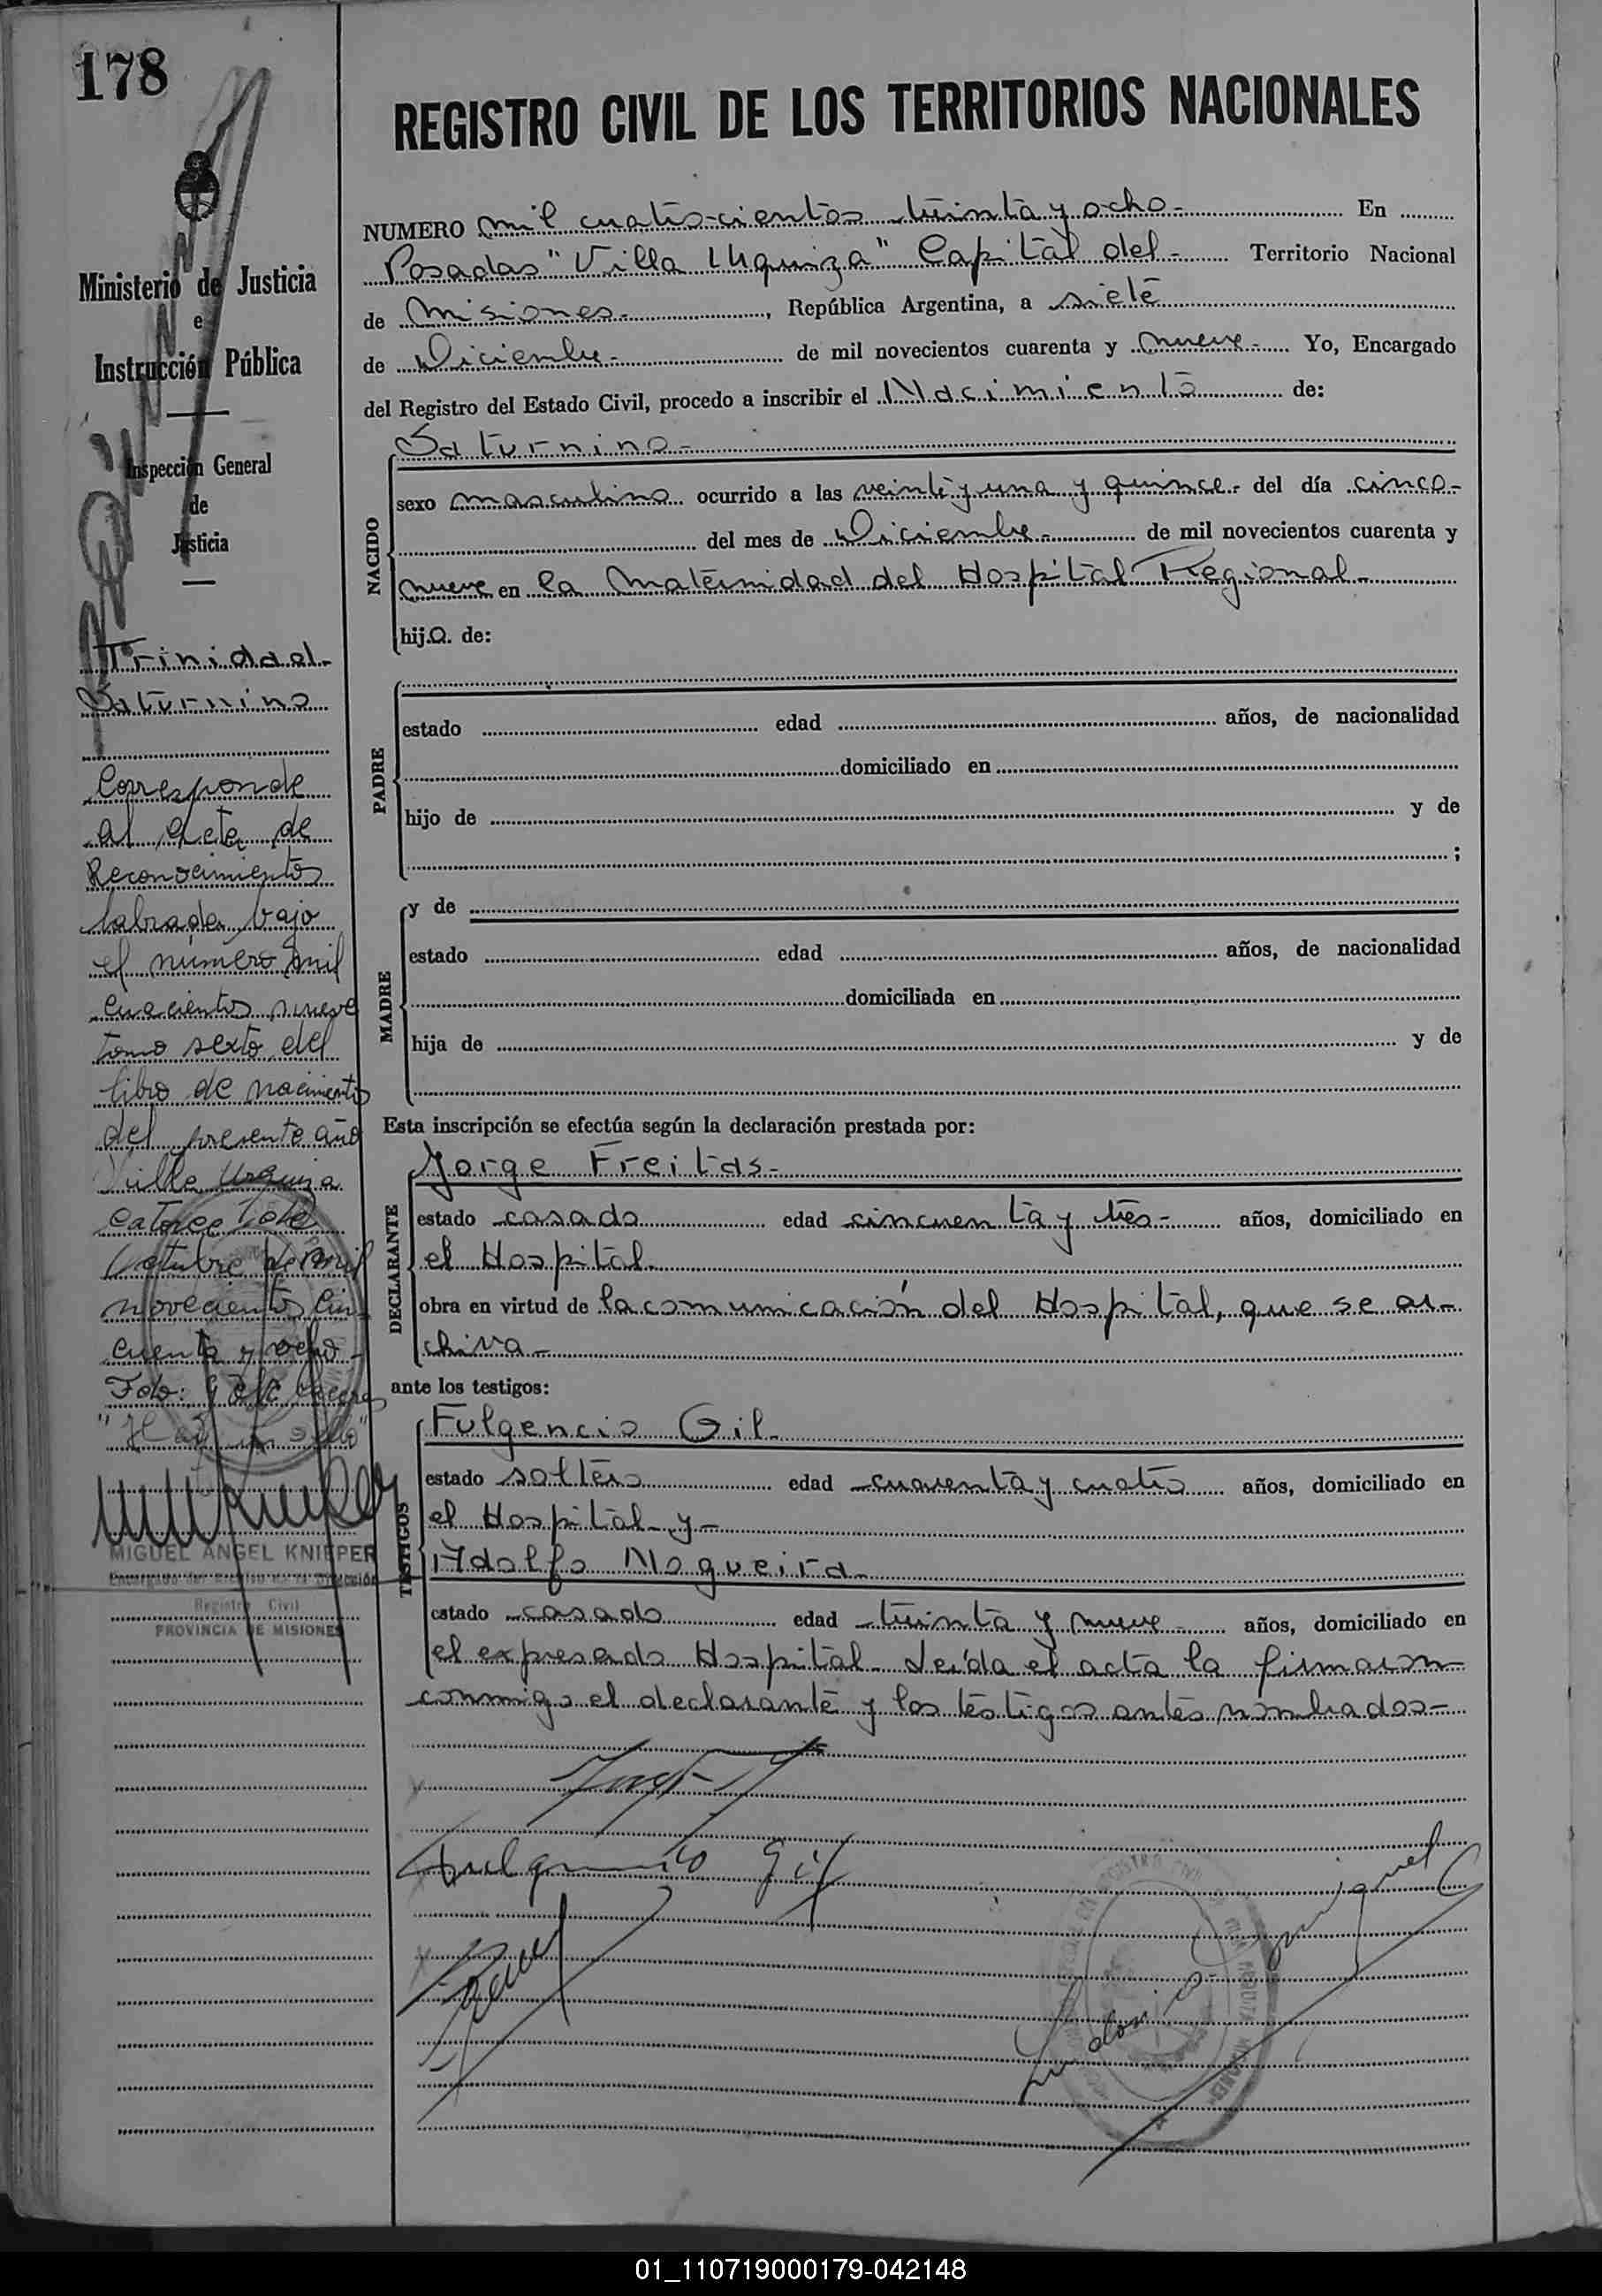 178
Ministerio de Justicia
e
Instrucción Pública
Inspección General
de
Justicia
Trinidad-
Saturnino
Corresponde
al acta de
Reconocimiento
labrada bajo
el número mil
cuacientos nueve
tomo sexto del
libro de nacimiento
del presente año
Villa Urquiza
catorce de
Octubre de mil
novecientos cin-
cuenta y ocho-
Fdo:
"Hay un sello"
MIGUEL ANGEL KNIEPER
Encargado del Archivo de la Dirección
Registro Civil
PROVINCIA DE MISIONES
REGISTRO CIVIL DE LOS TERRITORIOS NACIONALES
NUMERO mil cuatro-cientos treinta y ocho- En
Posadas "Villa Urquiza" Capital del- Territorio Nacional
de Misiones-, República Argentina, a siete
de Diciembre- de mil novecientos cuarenta y nueve- Yo, Encargado
del Registro del Estado Civil, procedo a inscribir el Nacimiento de:
NACIDO
Saturnino-
sexo masculino ocurrido a las veinte y una y quince- del día cinco-
del mes de Diciembre- de mil novecientos cuarenta y
nueve en la Maternidad del Hospital Regional-
hijo. de:
PADRE
estado edad años, de nacionalidad
domiciliado en
hijo de y de
;
MADRE
y de
estado edad años, de nacionalidad
domiciliada en
hija de y de
Esta inscripción se efectúa según la declaración prestada por:
DECLARANTE
Jorge Freitas-
estado casado edad cincuenta y tres- años, domiciliado en
el Hospital-
obra en virtud de la comunicación del Hospital, que se ar-
chiva-
ante los testigos:
TESTIGOS
Fulgencio Gil-
estado soltero edad cuarenta y cuatro años, domiciliado en
el Hospital-y-
Adolfo Nogueira-
estado casado edad treinta y nueve- años, domiciliado en
el expresado Hospital- Leída el acta la firmaron
conmigo el declarante y los testigos antes nombrados-
Fulgencio Gil
01_110719000179-042148